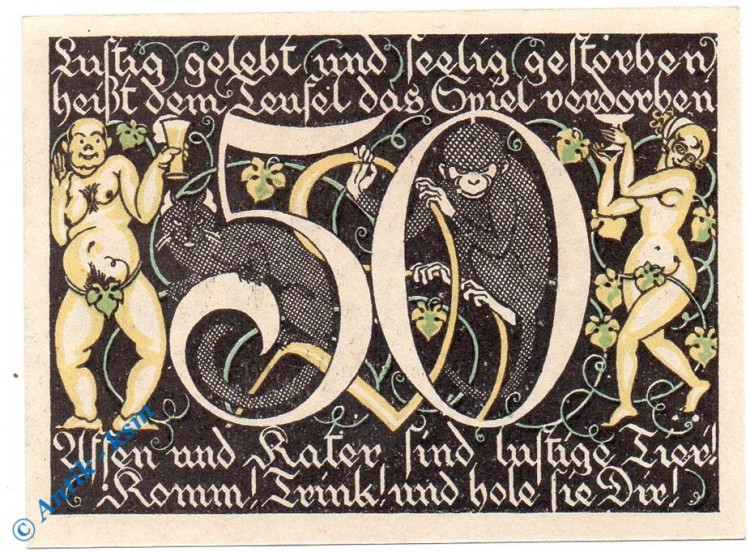 Lustig gelebt und seelig gestorben
heißt dem Teufel das Spiel verdorben
50
Affen und Kater sind lustige Tier!
Komm! Trink! und hole sie Dir!
© Antik - ksm